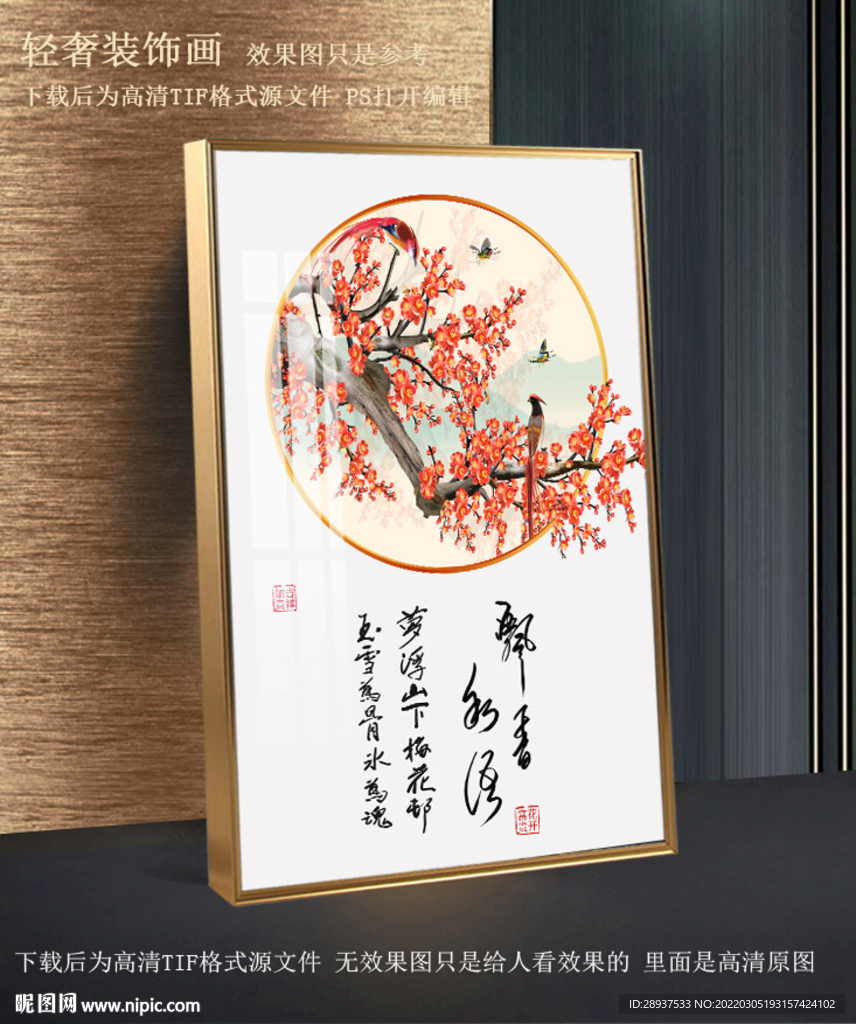 轻奢装饰画 效果图只是参考
下载后为高清TIF格式源文件 PS打开编辑
飘香
私语
萝浮山下梅花邨
玉雪为骨冰为魂
花开富贵
下载后为高清TIF格式源文件 无效果图只是给人看效果的 里面是高清原图
昵图网 www.nipic.com
ID:28937533 NO:20220305193157424102